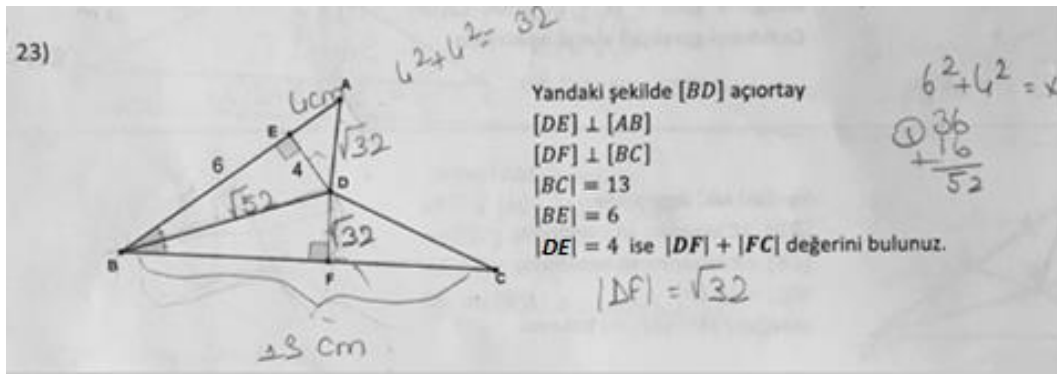 23)
4²+4²= 32
A
4cm
E
√32
6
4
D
√52
√32
B
F
C
13 cm
Yandaki şekilde [BD] açıortay
[DE] ⊥ [AB]
[DF] ⊥ [BC]
|BC| = 13
|BE| = 6
|DE| = 4 ise |DF| + |FC| değerini bulunuz.
|DF| = √32
6²+4² = x
36
+ 16
52